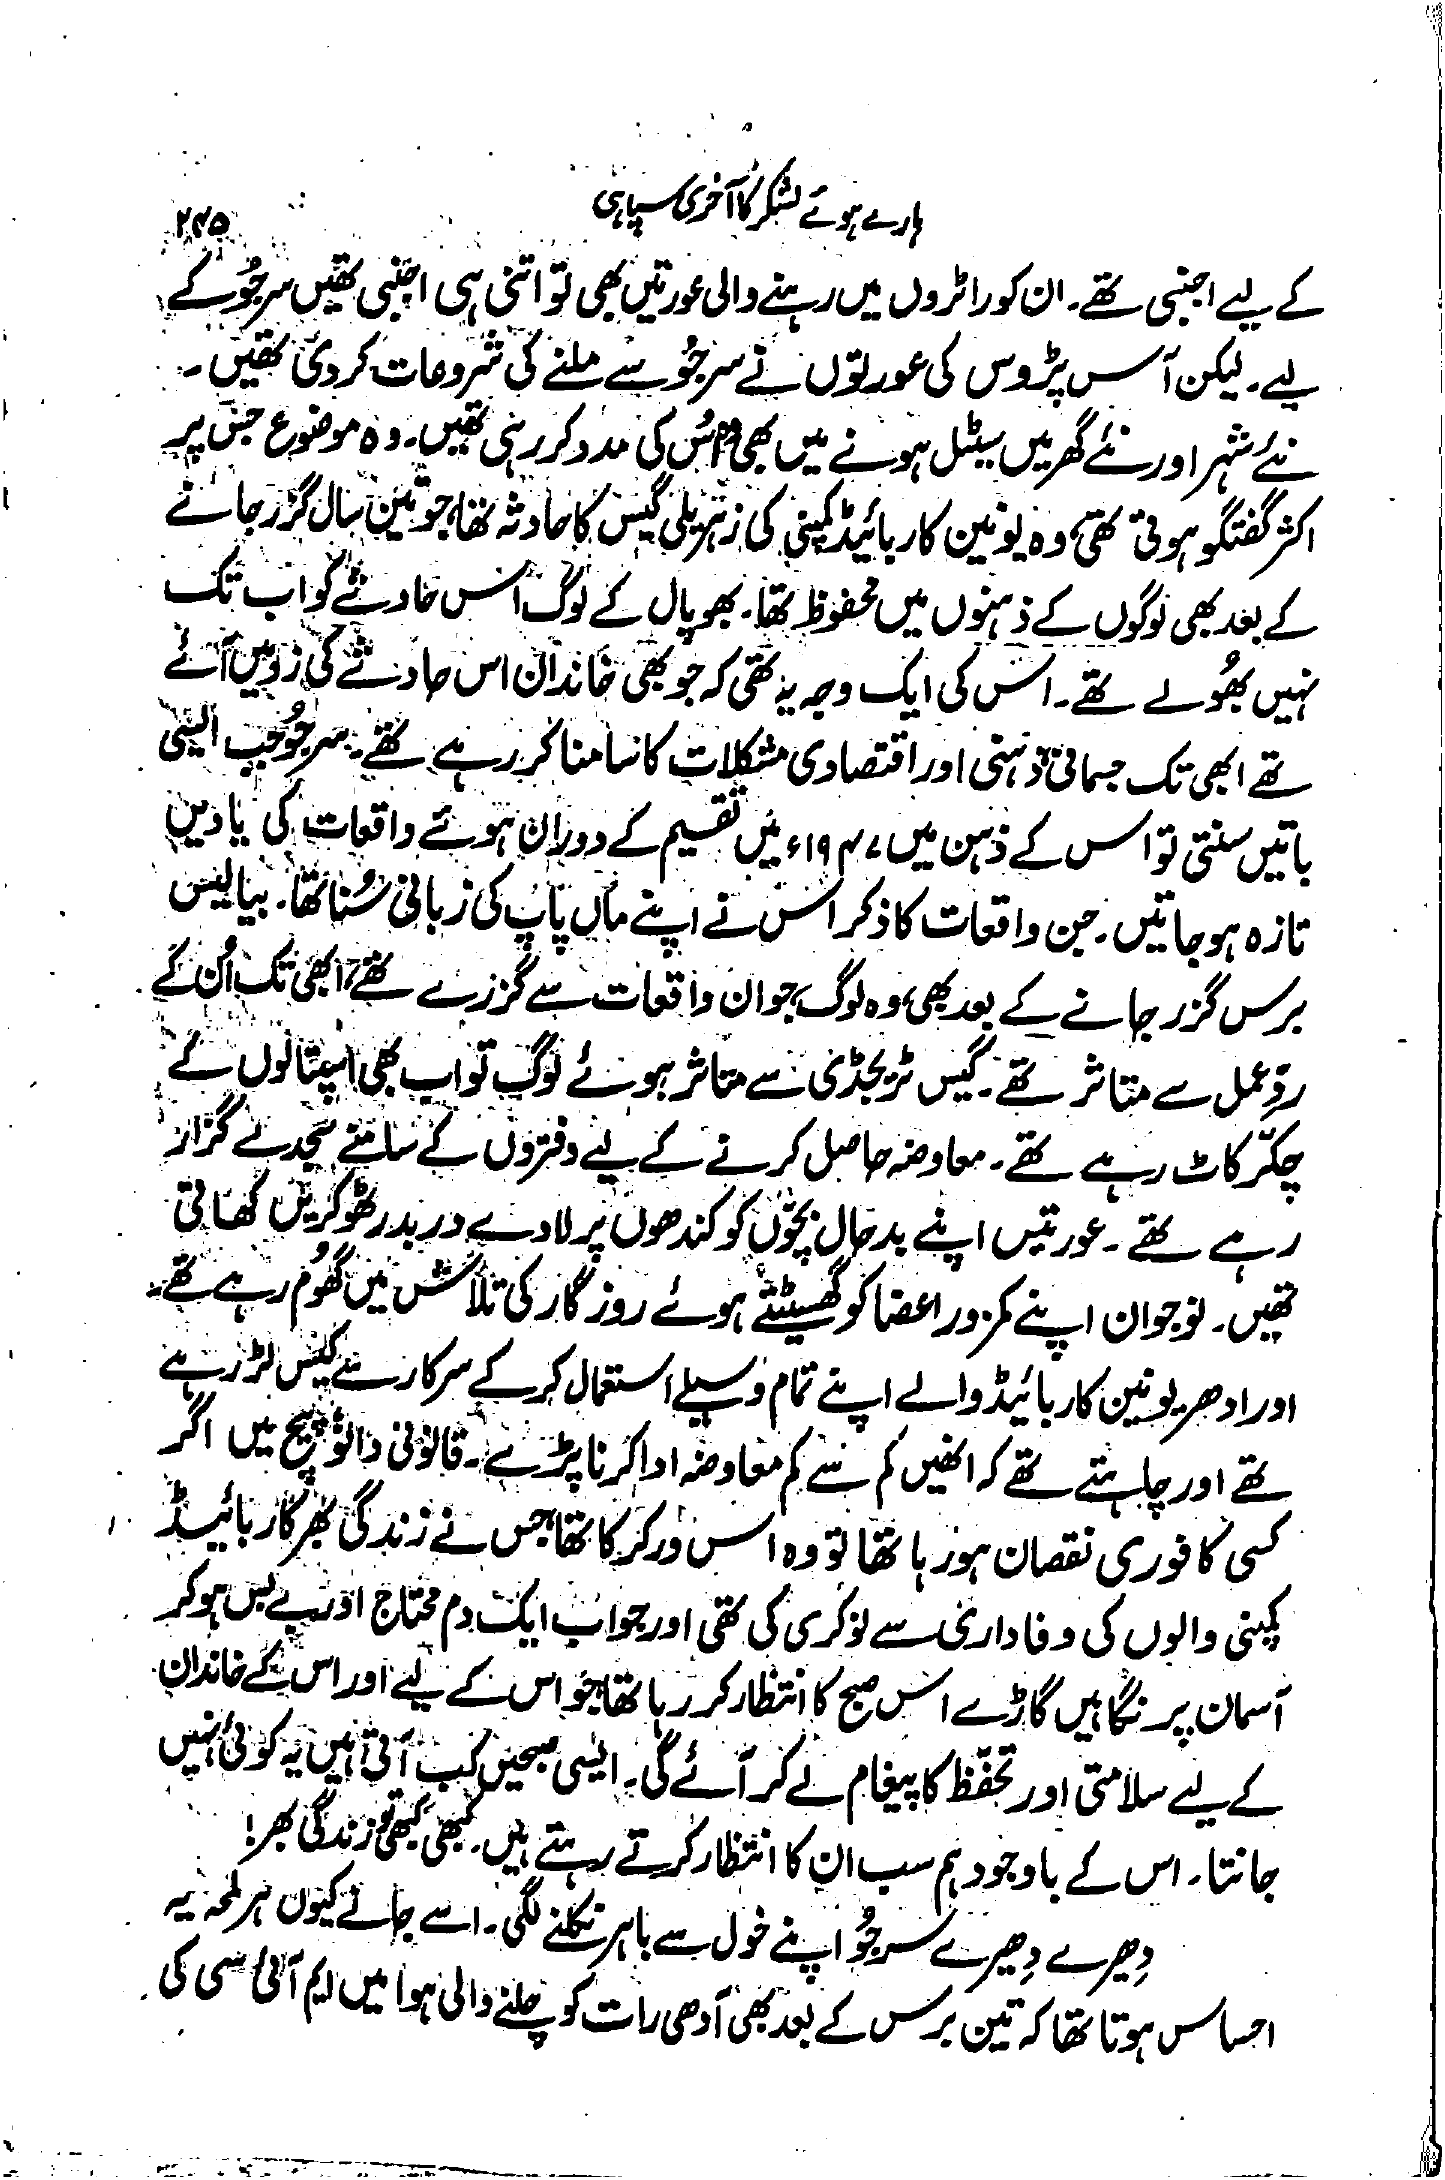 ہارے ہوئے لشکر کا آخری سپاہی
۲۴۵
کے لیے اجنبی تھے۔ ان کوراٹروں میں رہنے والی عورتیں بھی تو اتنی ہی اجنبی تھیں سرجُو کے
لیے۔ لیکن آس پڑوس کی عورتوں نے سرجُو سے ملنے کی شروعات کر دی تھیں۔
نئے شہر اور نئے گھر میں سیٹل ہونے میں بھی وہ اُس کی مدد کر رہی تھیں۔ وہ موضوع جس پر
اکثر گفتگو ہوتی تھی، وہ یونین کاربائیڈ کمپنی کی زہریلی گیس کا حادثہ تھا، جو تین سال گزر جانے
کے بعد بھی لوگوں کے ذہنوں میں محفوظ تھا۔ بھوپال کے لوگ اُس حادثے کو اب تک
نہیں بھُولے تھے۔ اس کی ایک وجہ یہ تھی کہ جو بھی خاندان اس حادثے کی زد میں آئے
تھے ابھی تک جسمانی، ذہنی اور اقتصادی مشکلات کا سامنا کر رہے تھے۔ سرجُو جب ایسی
باتیں سنتی تو اس کے ذہن میں ۱۹۴۷ء میں تقسیم کے دوران ہوئے واقعات کی یادیں
تازہ ہو جاتیں۔ جن واقعات کا ذکر اس نے اپنے ماں باپ کی زبانی سُنا تھا۔ بیالیس
برس گزر جانے کے بعد بھی، وہ لوگ، جو ان واقعات سے گزرے تھے، ابھی تک اُن کے
ردِّ عمل سے متاثر تھے۔ گیس ٹریجڈی سے متاثر ہوئے لوگ تو اب بھی اسپتالوں کے
چکّر کاٹ رہے تھے۔ معاوضہ حاصل کرنے کے لیے دفتروں کے سامنے سجدے گزار
رہے تھے۔ عورتیں اپنے بدحال بچّوں کو کندھوں پر لادے در بدر ٹھوکریں کھاتی
تھیں۔ نوجوان اپنے کمزور اعضا کو گھسیٹتے ہوئے روزگار کی تلاش میں گھُوم رہے تھے۔
اور ادھر یونین کاربائیڈ والے اپنے تمام وسیلے استعمال کر کے سرکار سے کیس لڑ رہے
تھے اور چاہتے تھے کہ انھیں کم سے کم معاوضہ ادا کرنا پڑے۔ قانونی دانو پیچ میں اگر
کسی کا فوری نقصان ہو رہا تھا تو وہ اس ورکر کا تھا، جس نے زندگی بھر کاربائیڈ
کمپنی والوں کی وفاداری سے نوکری کی تھی اور جو اب ایک دم محتاج اور بے بس ہو کر
آسمان پر نگاہیں گاڑے اس صبح کا انتظار کر رہا تھا، جو اس کے لیے اور اس کے خاندان
کے لیے سلامتی اور تحفّظ کا پیغام لے کر آئے گی۔ ایسی صبحیں کب آتی ہیں یہ کوئی نہیں
جانتا۔ اس کے باوجود ہم سب ان کا انتظار کرتے رہتے ہیں۔ کبھی کبھی تو زندگی بھر!
دِھیرے دِھیرے سرجُو اپنے خول سے باہر نکلنے لگی۔ اسے جانے کیوں ہر لمحہ یہ
احساس ہوتا تھا کہ تین برس کے بعد بھی آدھی رات کو چلنے والی ہوا میں ایم آئی سی کی